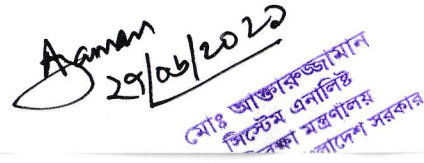 Azaman
29/06/2022
মোঃ আক্তারুজ্জামান
সিস্টেম এনালিষ্ট
মন্ত্রণালয়
সরকার